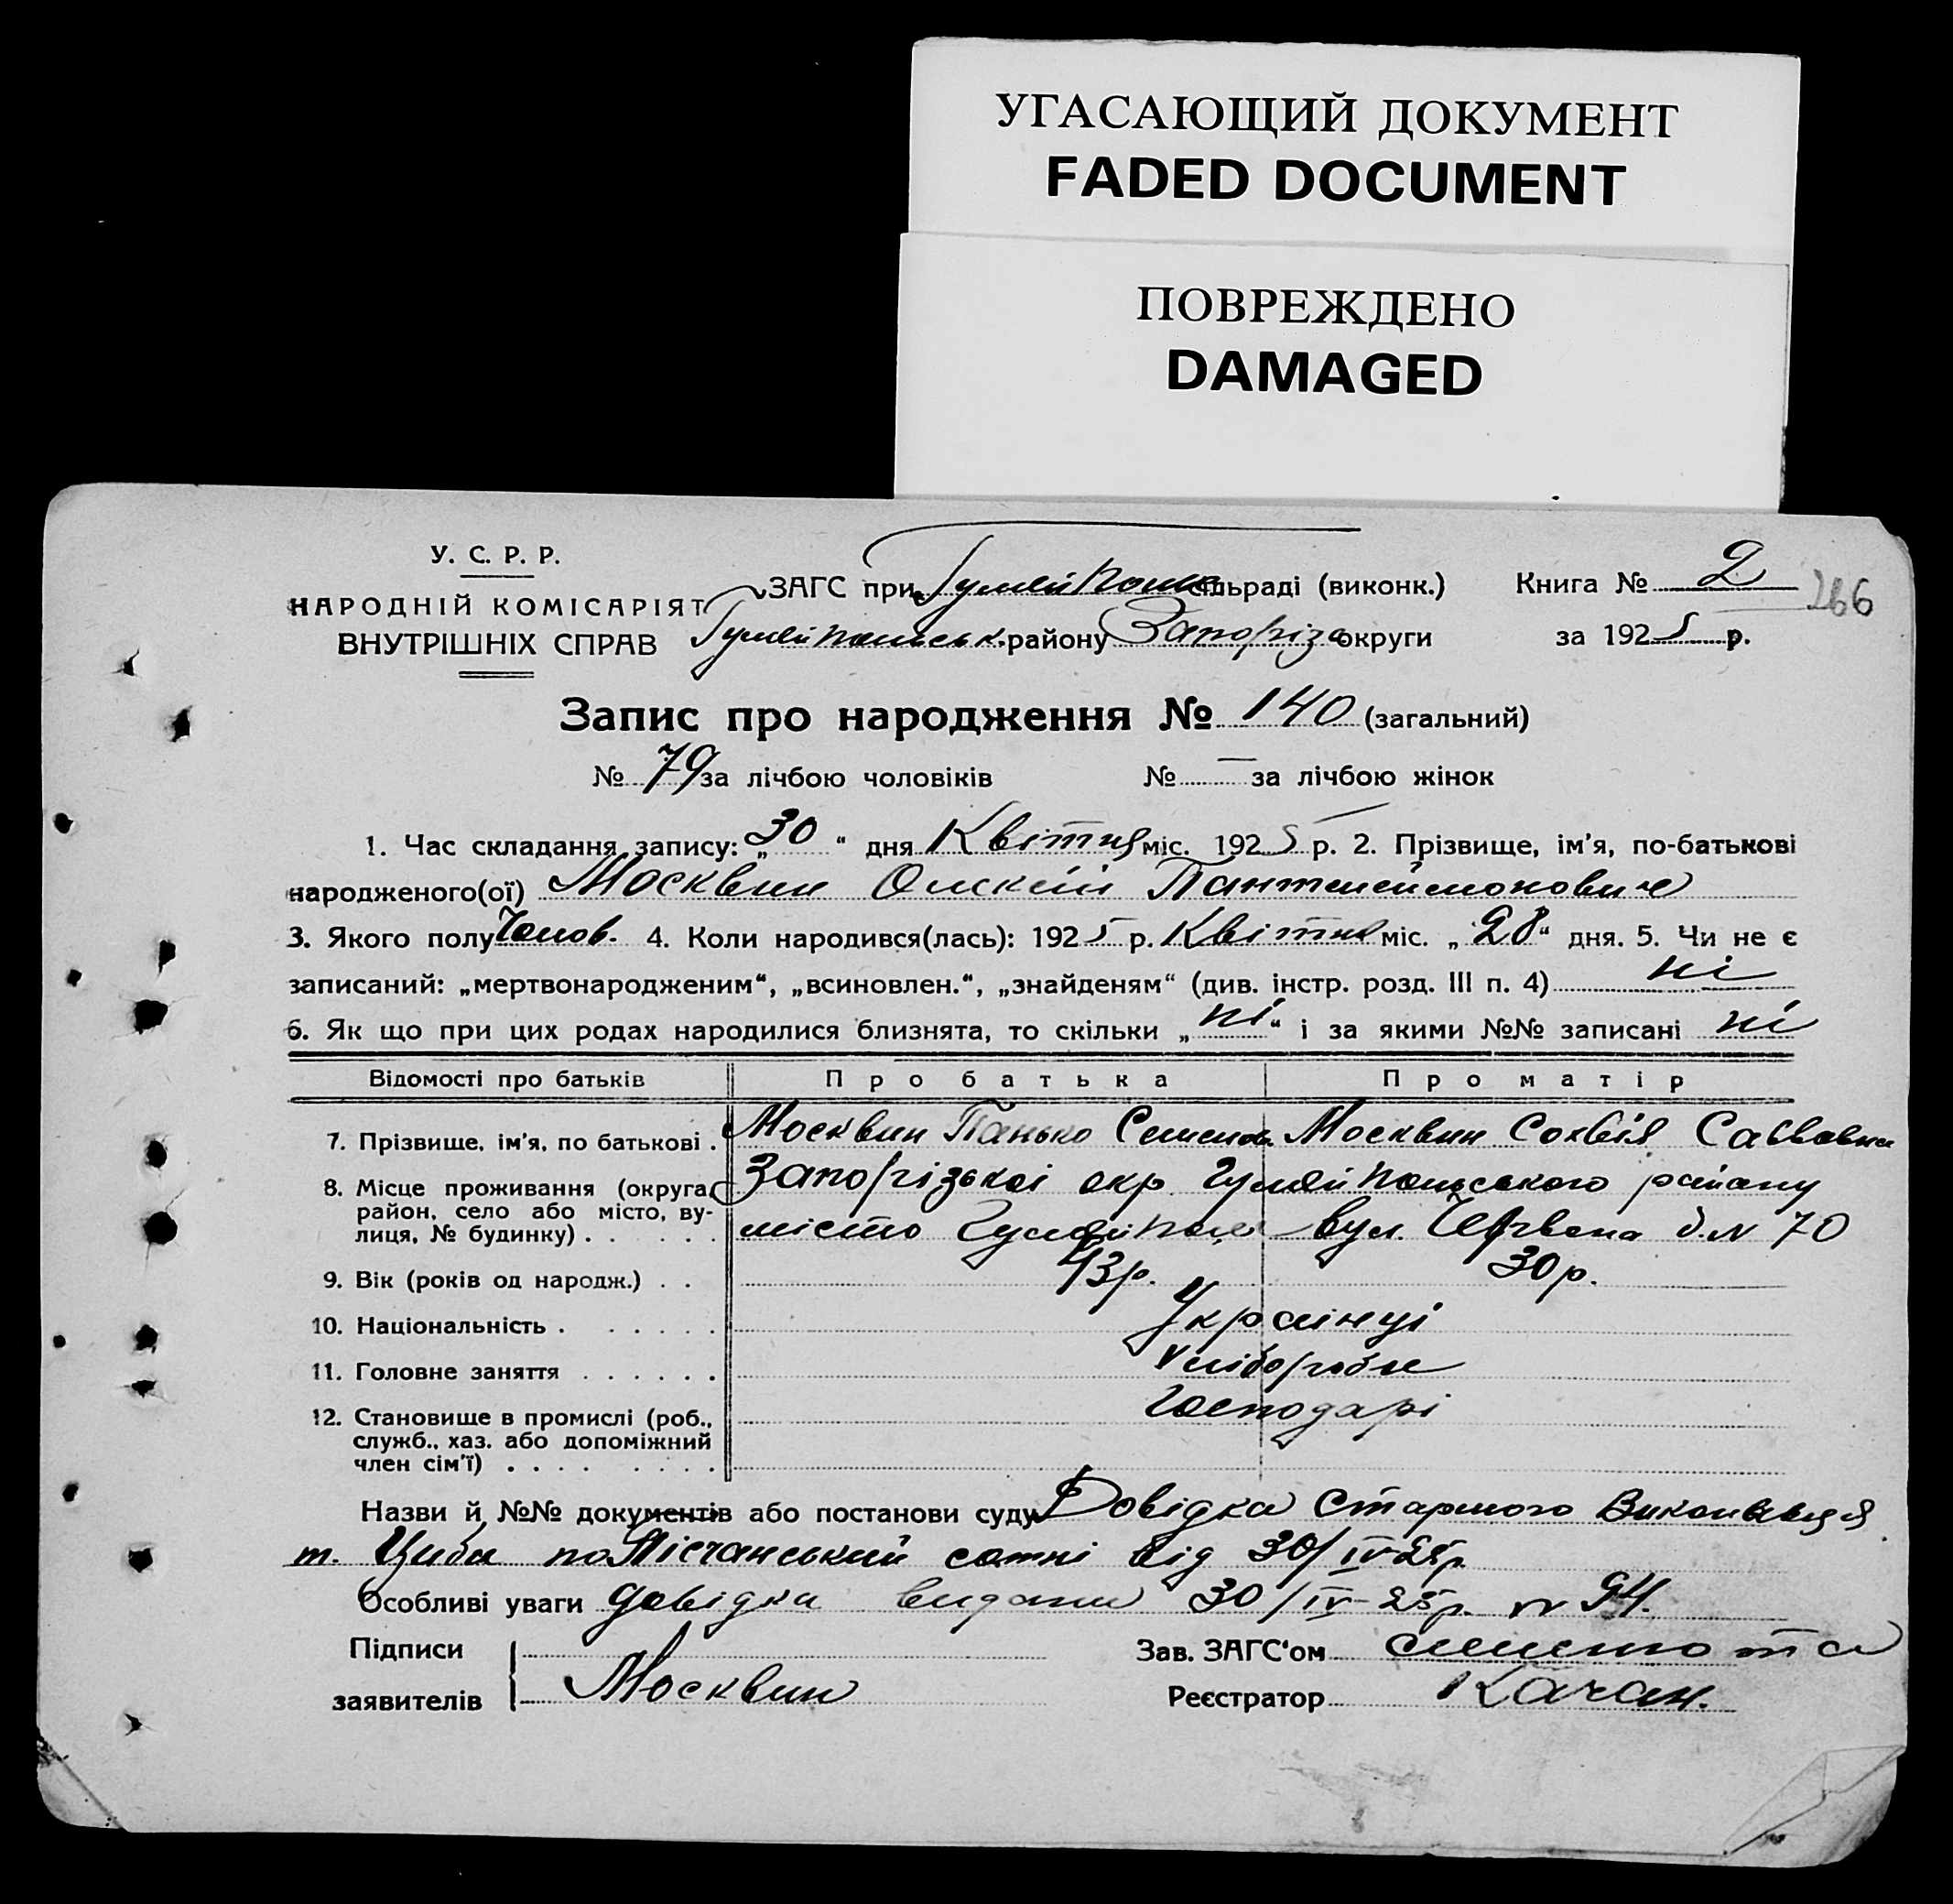 УГАСАЮЩИЙ ДОКУМЕНТ
FADED DOCUMENT
ПОВРЕЖДЕНО
DAMAGED
У. С. Р. Р.
НАРОДНІЙ КОМІСАРІЯТ
ВНУТРІШНІХ СПРАВ
ЗАГС при Гуляйпольс сільраді (виконк.) Книга № 2 266
Гуляйпольськ. району Запоріз округи за 1925 р.
Запис про народження № 140 (загальний)
№ 79 за лічбою чоловіків № — за лічбою жінок
1. Час складання запису: „30“ дня Квітня міс. 1925 р. 2. Прізвище, ім'я, по-батькові
народженого(ої) Москвин Олксій Пантилеймонович
3. Якого полу Чолов. 4. Коли народився(лась): 1925 р. Квітня міс. „28“ дня. 5. Чи не є
записаний: „мертвонародженим“, „всиновлен.“, „знайденям“ (див. інстр. розд. III п. 4) ні
6. Як що при цих родах народилися близнята, то скільки „ні“ і за якими №№ записані ні
Відомості про батьків Про батька Про матір
7. Прізвище, ім'я, по батькові . Москвин Панько Семенов. Москвин Софія Саввовна
8. Місце проживання (округа, район, село або місто, вулиця, № будинку) . . . . . . Запорізькоі окр. Гуляйпольського району
місто Гуляйполе вул. Червона б. № 70
9. Вік (років од народж.) . . 43р. 30р.
10. Національність . . . . . . Українці
11. Головне заняття . . . . . . хлібороби
12. Становище в промислі (роб., служб., хаз. або допоміжний член сім'ї) . . . . . . . . Господарі
Назви й №№ документів або постанови суду Довідка Старшого Виконавця
т. Циби по Пісчанський сотні від 30/IV-25р.
Особливі уваги довідка видана 30/IV-25р. № 94.
Підписи Зав. ЗАГС‘ом
заявителів Москвин Реєстратор Качан.